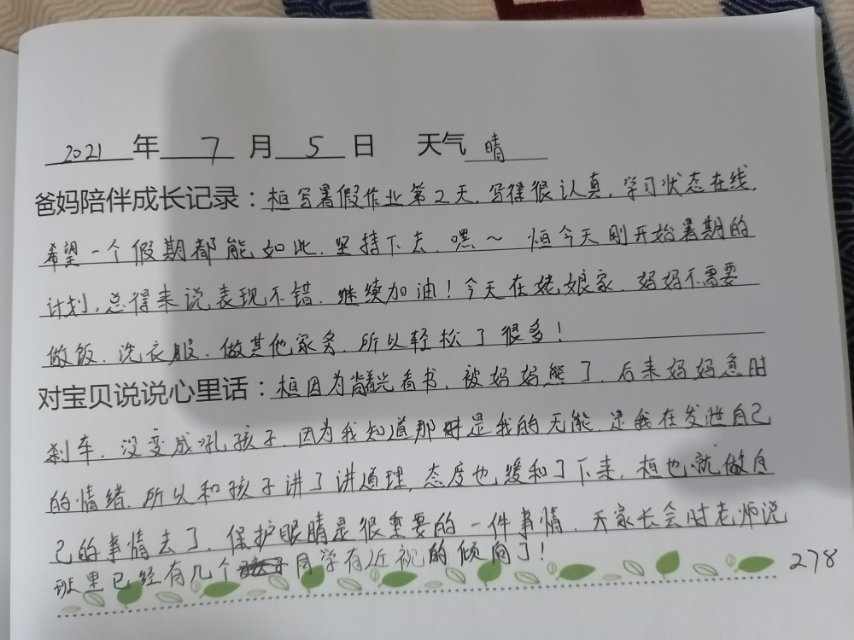 2021 年 7 月 5 日 天气 晴
爸妈陪伴成长记录：桓写暑假作业第2天，写得很认真，学习状态在线，
希望一个假期都能如此，坚持下去，嘿～ 恒今天刚开始暑期的
计划，总得来说表现不错，继续加油！今天在姥娘家，妈妈不需要
做饭、洗衣服、做其他家务，所以轻松了很多！
对宝贝说说心里话：桓因为背光看书，被妈妈熊了，后来妈妈急时
刹车，没变成吼孩子，因为我知道那时是我的无能，是我在发泄自己
的情绪，所以和孩子讲了讲道理，态度也缓和了下来，桓也就做自
己的事情去了，保护眼睛是很重要的一件事情，开家长会时老师说
班里已经有几个同学有近视的倾向了！
278